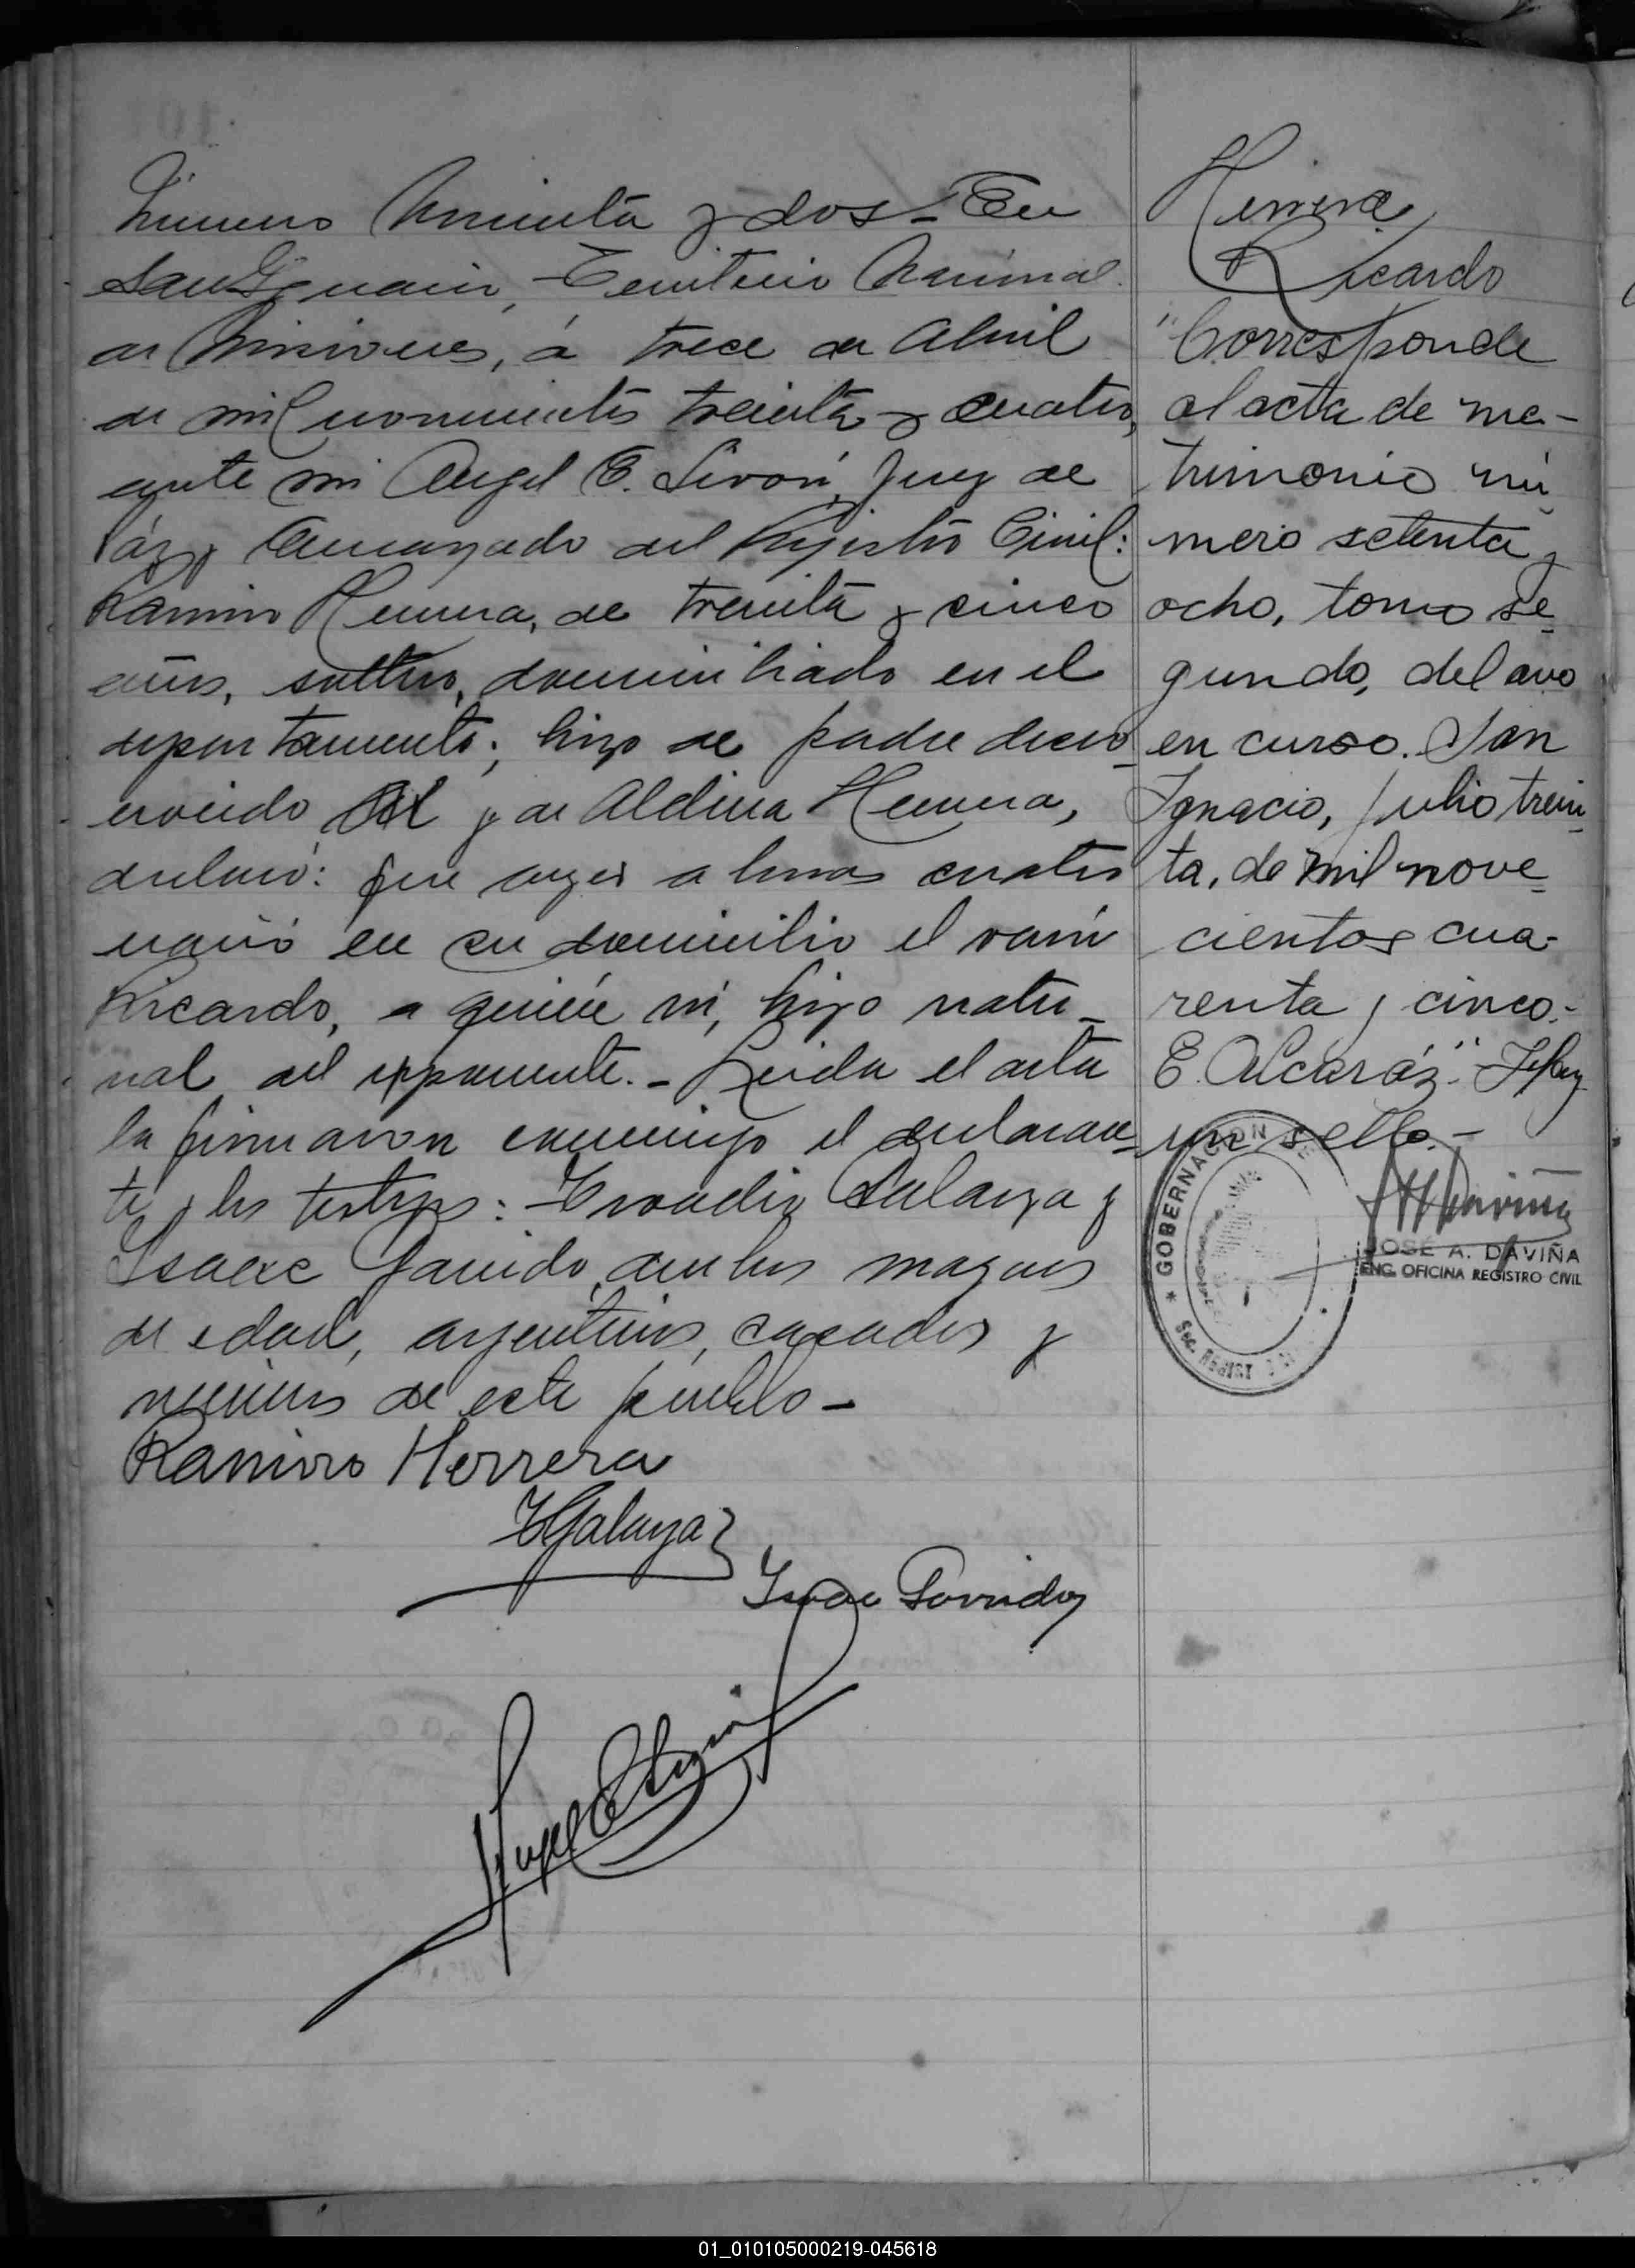 Número y dos - En
San Ignacio, Territorio Nacional
de Misiones, á trece de Abril
de mil novecientos treinta y cuatro,
ante mi Angel E. Juez de
Páz y Encargado del Registro Civil:
Ramiro Herrera, de treinta y cinco
años, soltero, domiciliado en el
departamento; hijo de padre desco_
nocido y de Aldina Herrera,
declaró: Que ayer a horas cuatro
nació en su domicilio el varón
Ricardo, a quién vi, hijo natu_
ral del exponente. - Leida el acta
la firmaron conmigo el declaran_
te y los testigos: Galarza y
Isaac Garrido, ambos mayores
de edad, argentinos, casados y
vecinos de este pueblo -
Ramiro Herrera
Galarza
Isaac Garrido
Angel E.
Herrera
Ricardo
"Corresponde
al acta de ma-
trimonio nú_
mero setenta y
ocho, tomo se_
gundo, del año
en curso. San
Ignacio, Julio trein_
ta, de mil nove_
cientos cua-
renta y cinco.-
E. Alcaráz". Hay
un sello. -
* GOBERNACION DE
JOSÉ A. DAVIÑA
ENC. OFICINA REGISTRO CIVIL
01_010105000219-045618